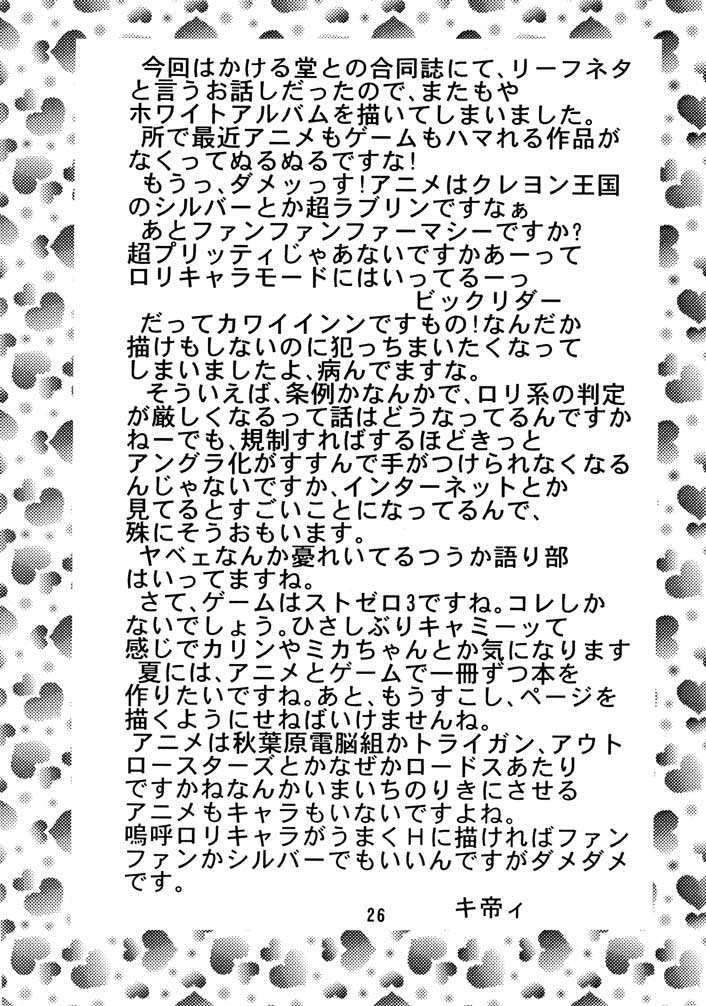 今回はかける堂との合同誌にて、リーフネタ
と言うお話しだったので、またもや
ホワイトアルバムを描いてしまいました。
所で最近アニメもゲームもハマれる作品が
なくってぬるぬるですな!
もうっ、ダメッっす!アニメはクレヨン王国
のシルバーとか超ラブリンですなぁ
あとファンファンファーマシーですか?
超プリッティじゃあないですかあーって
ロリキャラモードにはいってるーっ
ビックリダー
だってカワイインンですもの!なんだか
描けもしないのに犯っちまいたくなって
しまいましたよ、病んでますな。
そういえば、条例かなんかで、ロリ系の判定
が厳しくなるって話はどうなってるんですか
ねーでも、規制すればするほどきっと
アングラ化がすすんで手がつけられなくなる
んじゃないですか、インターネットとか
見てるとすごいことになってるんで、
殊にそうおもいます。
ヤベェなんか憂れいてるつうか語り部
はいってますね。
さて、ゲームはストゼロ3ですね。コレしか
ないでしょう。ひさしぶりキャミーッて
感じでカリンやミカちゃんとか気になります
夏には、アニメとゲームで一冊ずつ本を
作りたいですね。あと、もうすこし、ページを
描くようにせねばいけませんね。
アニメは秋葉原電脳組かトライガン、アウト
ロースターズとかなぜかロードスあたり
ですかねなんかいまいちのりきにさせる
アニメもキャラもいないですよね。
嗚呼ロリキャラがうまくHに描ければファン
ファンかシルバーでもいいんですがダメダメ
です。
キ帝ィ
26